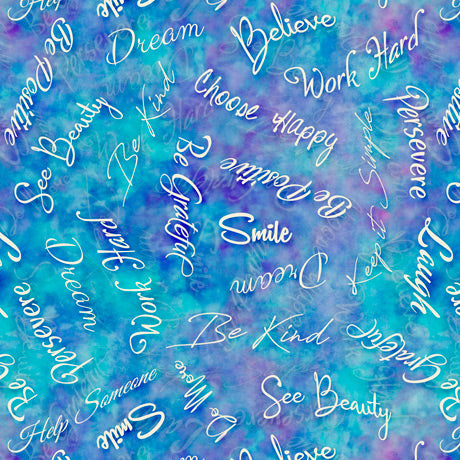 Smile
Dream
Believe
Be Positive
Work Hard
Be Kind
Choose Happy
Persevere
See Beauty
Be Grateful
Be Positive
Keep it Simple
Smile
Work Hard
Laugh
Dream
Dream
Persevere
Be Kind
Be Grateful
Be
Help Someone
Do More
See Beauty
Smile
Believe